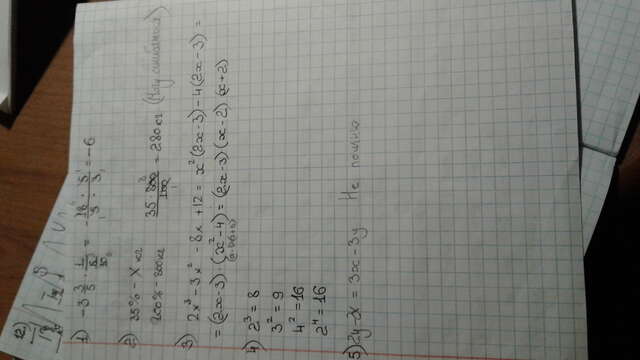 12)
1) -3 3/5 · 1/ = - 18 · 5 / 5 · 3 = -6
2) 35% - x кг
100% - 800кг 35·800/100 = 280кг (Могу ошибаться)
3) 2x³ - 3x² - 8x + 12 = x²(2x-3) - 4(2x-3) =
= (2x-3) · (x²-4) = (2x-3)(x-2)(x+2)
4) 2³ = 8
3² = 9
4² = 16
2⁴ = 16
5) 2y-2x = 3x-3y Не помню